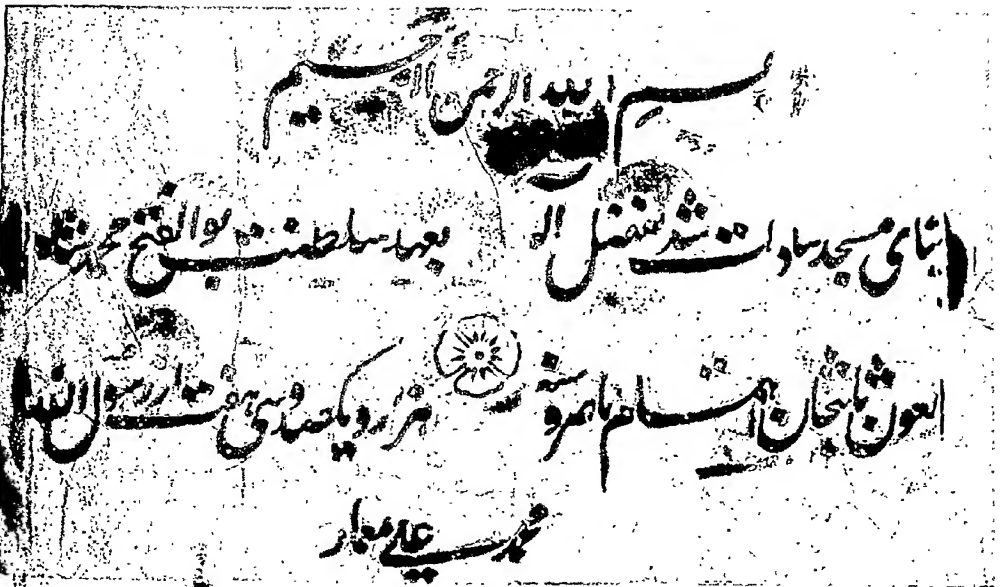 بسم الله الرحمن الرحيم
بنای مسجد سادات شد بفضل اله بعهد سلطنت بوالفتح محمد شاه
بعون اهتمام سنه هزار و یکصد و سی هفت از رسول الله
محمد علی معمار